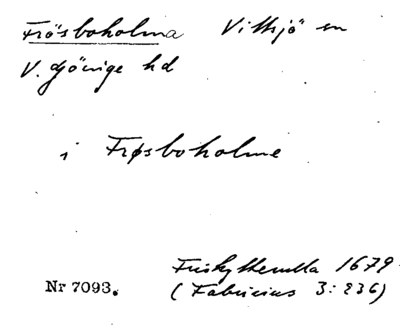 Frösboholma Vittsjö sn
V. Göinge hd
i Frøsboholme
Friskytterulla 1679
Nr 7093. (Fabricius 3: 236)